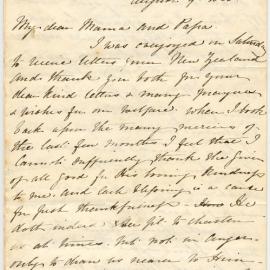 August 9
My dear Mama and Papa.
I was overjoyed on Saturday
to receive letters from New Zealand
and thank you both for your
dear kind letters & many prayers
& wishes for our welfare. When I look
back upon the many mercies of
the last few months I feel that I
cannot sufficiently thank the Giver
of all good for His loving kindness
to me. And each blessing is a cause
for just thankfulness. He
doth indeed see fit to chasten
us at times. but not in anger
only to draw us nearer to Him